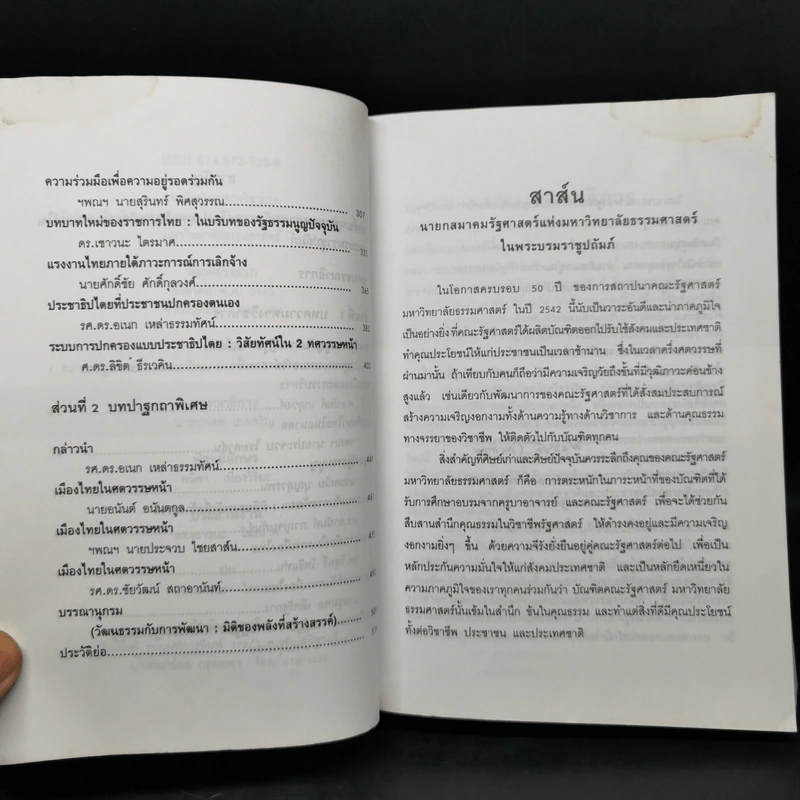 ความร่วมมือเพื่อความอยู่รอดร่วมกัน
ฯพณฯ นายสุรินทร์ พิศสุวรรณ 307
บทบาทใหม่ของราชการไทย : ในบริบทของรัฐธรรมนูญปัจจุบัน
ดร.เชาวนะ ไตรมาศ 331
แรงงานไทยภายใต้ภาวะการณ์การเลิกจ้าง
นายศักดิ์ชัย ศักดิ์กุลวงศ์ 365
ประชาธิปไตยที่ประชาชนปกครองตนเอง
รศ.ดร.เอนก เหล่าธรรมทัศน์ 383
ระบบการปกครองแบบประชาธิปไตย : วิสัยทัศน์ใน 2 ทศวรรษหน้า
ศ.ดร.ลิขิต ธีรเวคิน
ส่วนที่ 2 บทปาฐกถาพิเศษ
กล่าวนำ
รศ.ดร.เอนก เหล่าธรรมทัศน์
เมืองไทยในศตวรรษหน้า
นายอนันต์ อนันตกูล
เมืองไทยในศตวรรษหน้า
ฯพณฯ นายประจวบ ไชยสาส์น
เมืองไทยในศตวรรษหน้า
รศ.ดร.ชัยวัฒน์ สถาอานันท์
บรรณานุกรม
(วัฒนธรรมกับการพัฒนา : มิติของพลังที่สร้างสรรค์)
ประวัติย่อ
สาส์น
นายกสมาคมรัฐศาสตร์แห่งมหาวิทยาลัยธรรมศาสตร์
ในพระบรมราชูปถัมภ์
ในโอกาสครบรอบ 50 ปี ของการสถาปนาคณะรัฐศาสตร์
มหาวิทยาลัยธรรมศาสตร์ ในปี 2542 นี้นับเป็นวาระอันดีและน่าภาคภูมิใจ
เป็นอย่างยิ่ง ที่คณะรัฐศาสตร์ได้ผลิตบัณฑิตออกไปรับใช้สังคมและประเทศชาติ
ทำคุณประโยชน์ให้แก่ประชาชนเป็นเวลาช้านาน ซึ่งในเวลาครึ่งศตวรรษที่
ผ่านมานั้น ถ้าเทียบกับคนก็ถือว่ามีความเจริญวัยถึงขั้นที่มีวุฒิภาวะค่อนข้าง
สูงแล้ว เช่นเดียวกับพัฒนาการของคณะรัฐศาสตร์ที่ได้สั่งสมประสบการณ์
สร้างความเจริญงอกงามทั้งด้านความรู้ทางด้านวิชาการ และด้านคุณธรรม
ทางจรรยาของวิชาชีพ ให้ติดตัวไปกับบัณฑิตทุกคน
สิ่งสำคัญที่ศิษย์เก่าและศิษย์ปัจจุบันควรระลึกถึงคุณของคณะรัฐศาสตร์
มหาวิทยาลัยธรรมศาสตร์ ก็คือ การตระหนักในภาระหน้าที่ของบัณฑิตที่ได้
รับการศึกษาอบรมจากครูบาอาจารย์ และคณะรัฐศาสตร์ เพื่อจะได้ช่วยกัน
สืบสานสำนึกคุณธรรมในวิชาชีพรัฐศาสตร์ ให้ดำรงคงอยู่และมีความเจริญ
งอกงามยิ่งๆ ขึ้น ด้วยความจีรังยั่งยืนอยู่คู่คณะรัฐศาสตร์ต่อไป เพื่อเป็น
หลักประกันความมั่นใจให้แก่สังคมประเทศชาติ และเป็นหลักยึดเหนี่ยวใน
ความภาคภูมิใจของเราทุกคนร่วมกันว่า บัณฑิตคณะรัฐศาสตร์ มหาวิทยาลัย
ธรรมศาสตร์นั้นเข้มในสำนึก ข้นในคุณธรรม และทำแต่สิ่งที่มีคุณประโยชน์
ทั้งต่อวิชาชีพ ประชาชน และประเทศชาติ